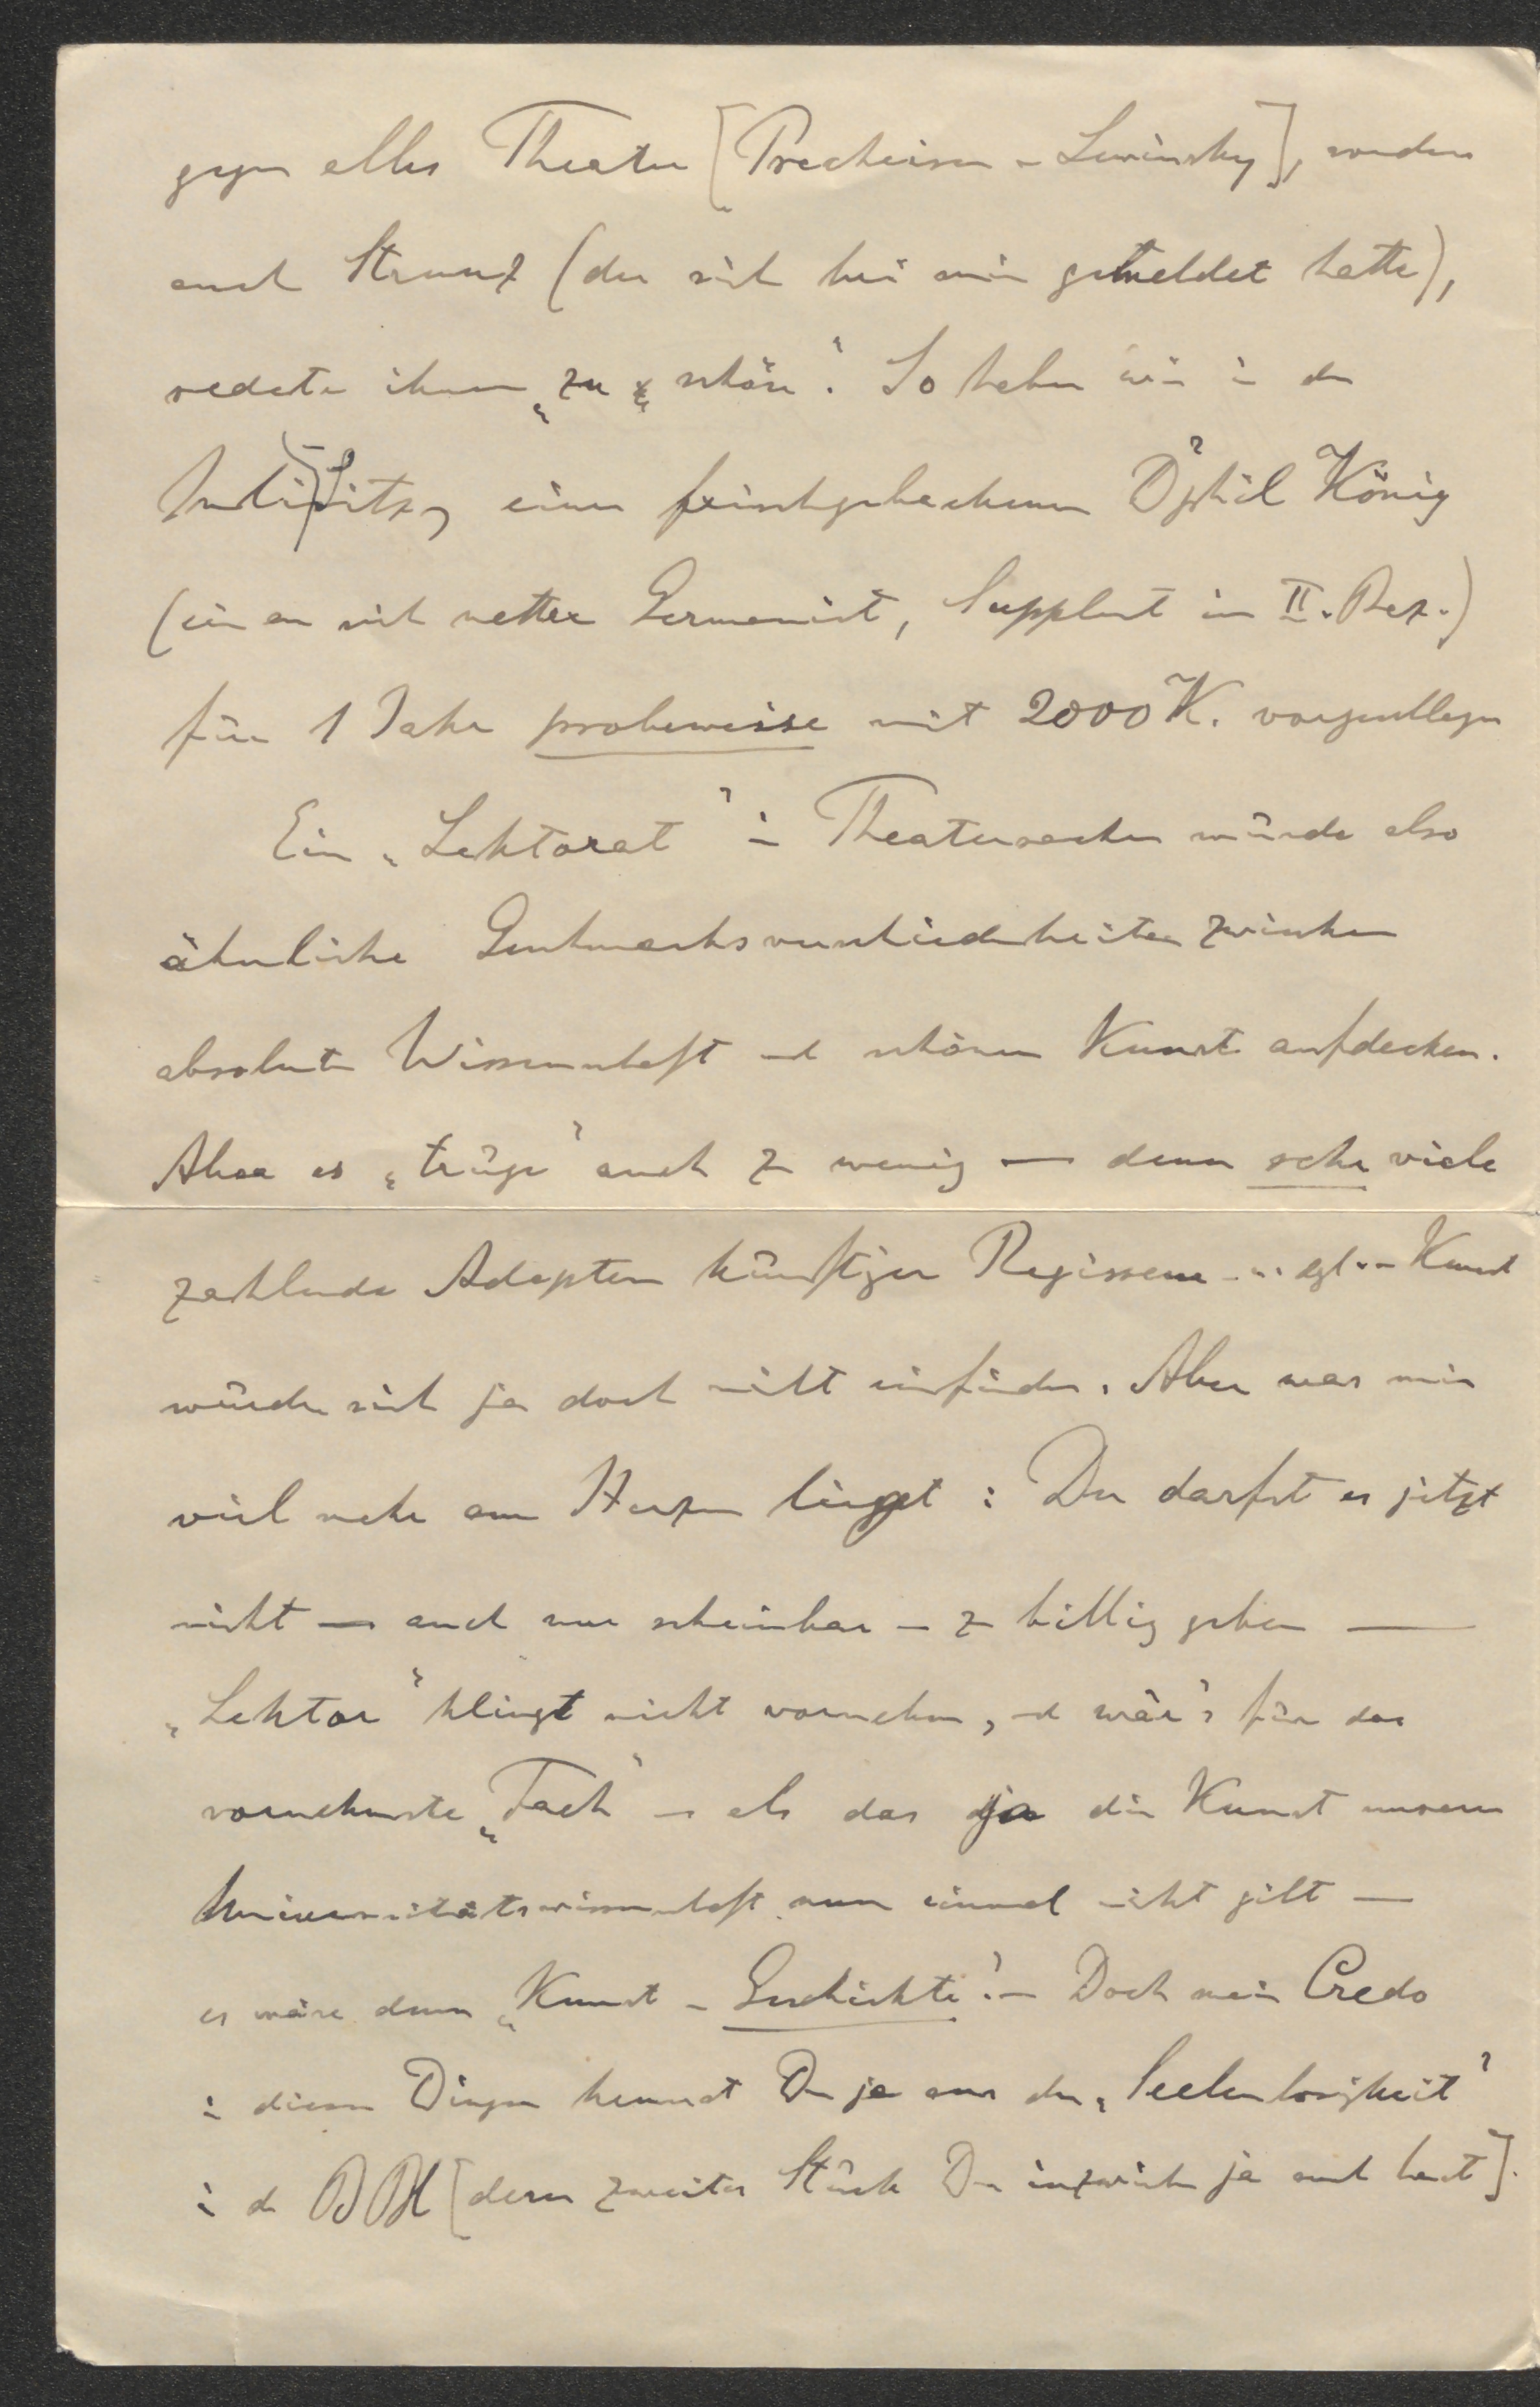 gegen alles Theater [Prechtiser-Lewinsky], sondern
auch Strunz (der sich bei mir gemeldet hatte),
redete ihnen „zu schön“. So haben wir in der
Sitzg einen frischgebackenen Dr phil König
(ein an sich netter Germanist, Supplent im II. Bez.)
für 1 Jahr probeweise mit 2000 K. vorgeschlagen
Ein „Lektorat“ in Theatersachen würde also
ähnliche Geschmacksverschiedenheiten zwischen
absoluter Wissenschaft und schöner Kunst aufdecken.
Aber es „trüge“ auch zu wenig — denn sehr viele
zahlende Adepten künftiger Regisseur- u. dgl. -Kunst
würden sich ja doch nicht einfinden. Aber was mir
viel mehr am Herzen liegt: Du darfst es jetzt
nicht — auch nur scheinbar — zu billig geben —
„Lektor“ klingt nicht vornehm, und wär's für das
vornehmste „Fach“ — als das ja die Kunst unserer
Universitätswissenschaft nun einmal nicht gilt —
es wäre denn „Kunst-Geschichte“. — Doch mein Credo
in diesen Dingen kennst Du ja aus der „Seelenlosigkeit“
in d [deren zweites Stück Du inzwischen ja auch hast].